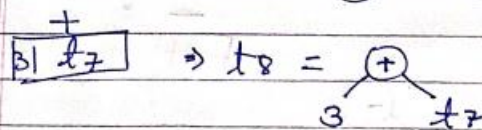 +
3 | t7 ⇒ t8 = +
3 t7